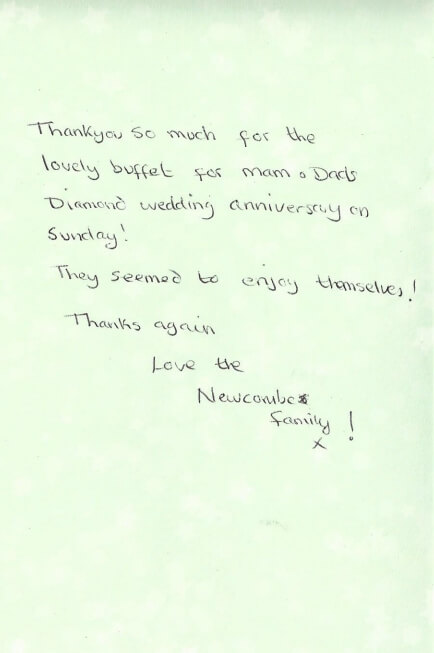 Thankyou so much for the
lovely buffet for mam & Dads
Diamond wedding anniversary on
Sunday!
They seemed to enjoy themselves!
Thanks again
Love the
Newcombes
family!
x